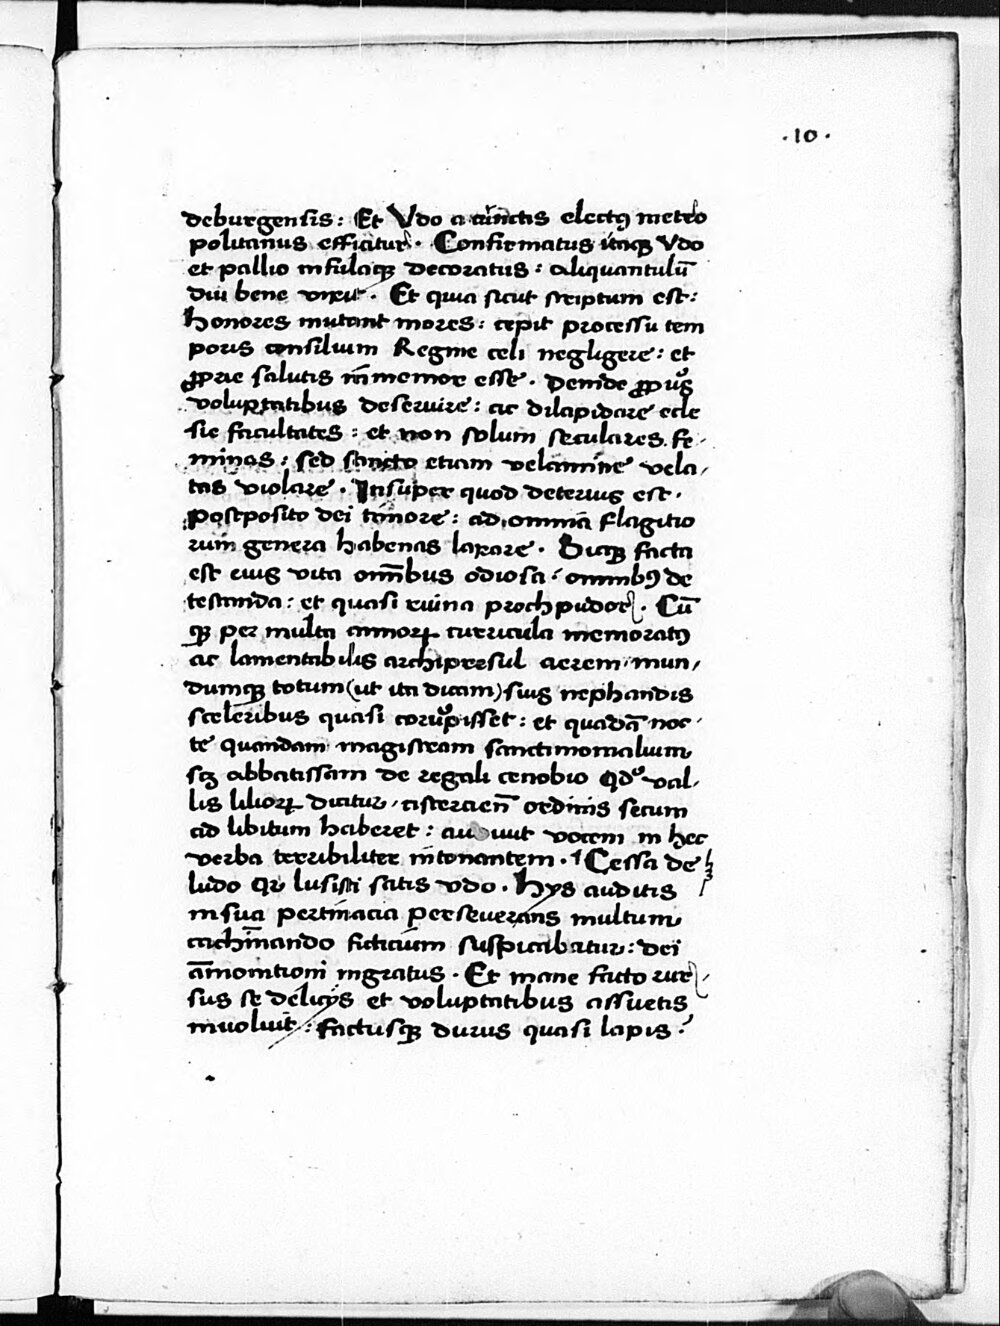 ·10·
deburgensis: Et Vdo a cūnctis electꝰ metro
politanus efficitur. Confirmatus itaqꝫ Vdo
et pallio infulaqꝫ decoratus: aliquantulū
diu bene vixit. Et quia sicut scriptum est:
honores mutant mores: cepit processu tem
poris consilium Regine celi negligere: et
ꝓprie salutis īmemor esse. Deinde
voluptatibus deseruire: ac dilapidare ecle
sie facultates: et non solum seculares fe-
minas: sed sancto etiam velamine vela-
tas violare. Insuper quod deterius est.
postposito dei timore: ad omnia flagitio
rum genera habenas laxare. Sicqꝫ facta
est eius vita om̄ibus odiosa: omnibꝰ de
testanda: et quasi ruina proch pudor. Cū
qꝫ per multa annoꝝ curricula memoratꝰ
ac lamentabilis archipresul aerem mun-
dumqꝫ totum (ut ita dicam) suis nephandis
sceleribus quasi corrupisset: et quadā noc-
te quandam magistram sanctimonialium
scꝫ abbatissam de regali cenobio qdᵒ val-
lis lilioꝝ dicitur, cistercien̄ ordinis secum
ad libitum haberet: audiuit vocem in hec
verba terribiliter intonantem. Cessa de
ludo qꝛ lusisti satis vdo. Hys auditis
in sua pertinacia perseverans multum
cachinando ficticium suspicabatur: dei
āmonitioni ingratus. Et mane facto rur
sus se delicijs et voluptatibus assuetis
inuoluit: factusqꝫ durus quasi lapis.